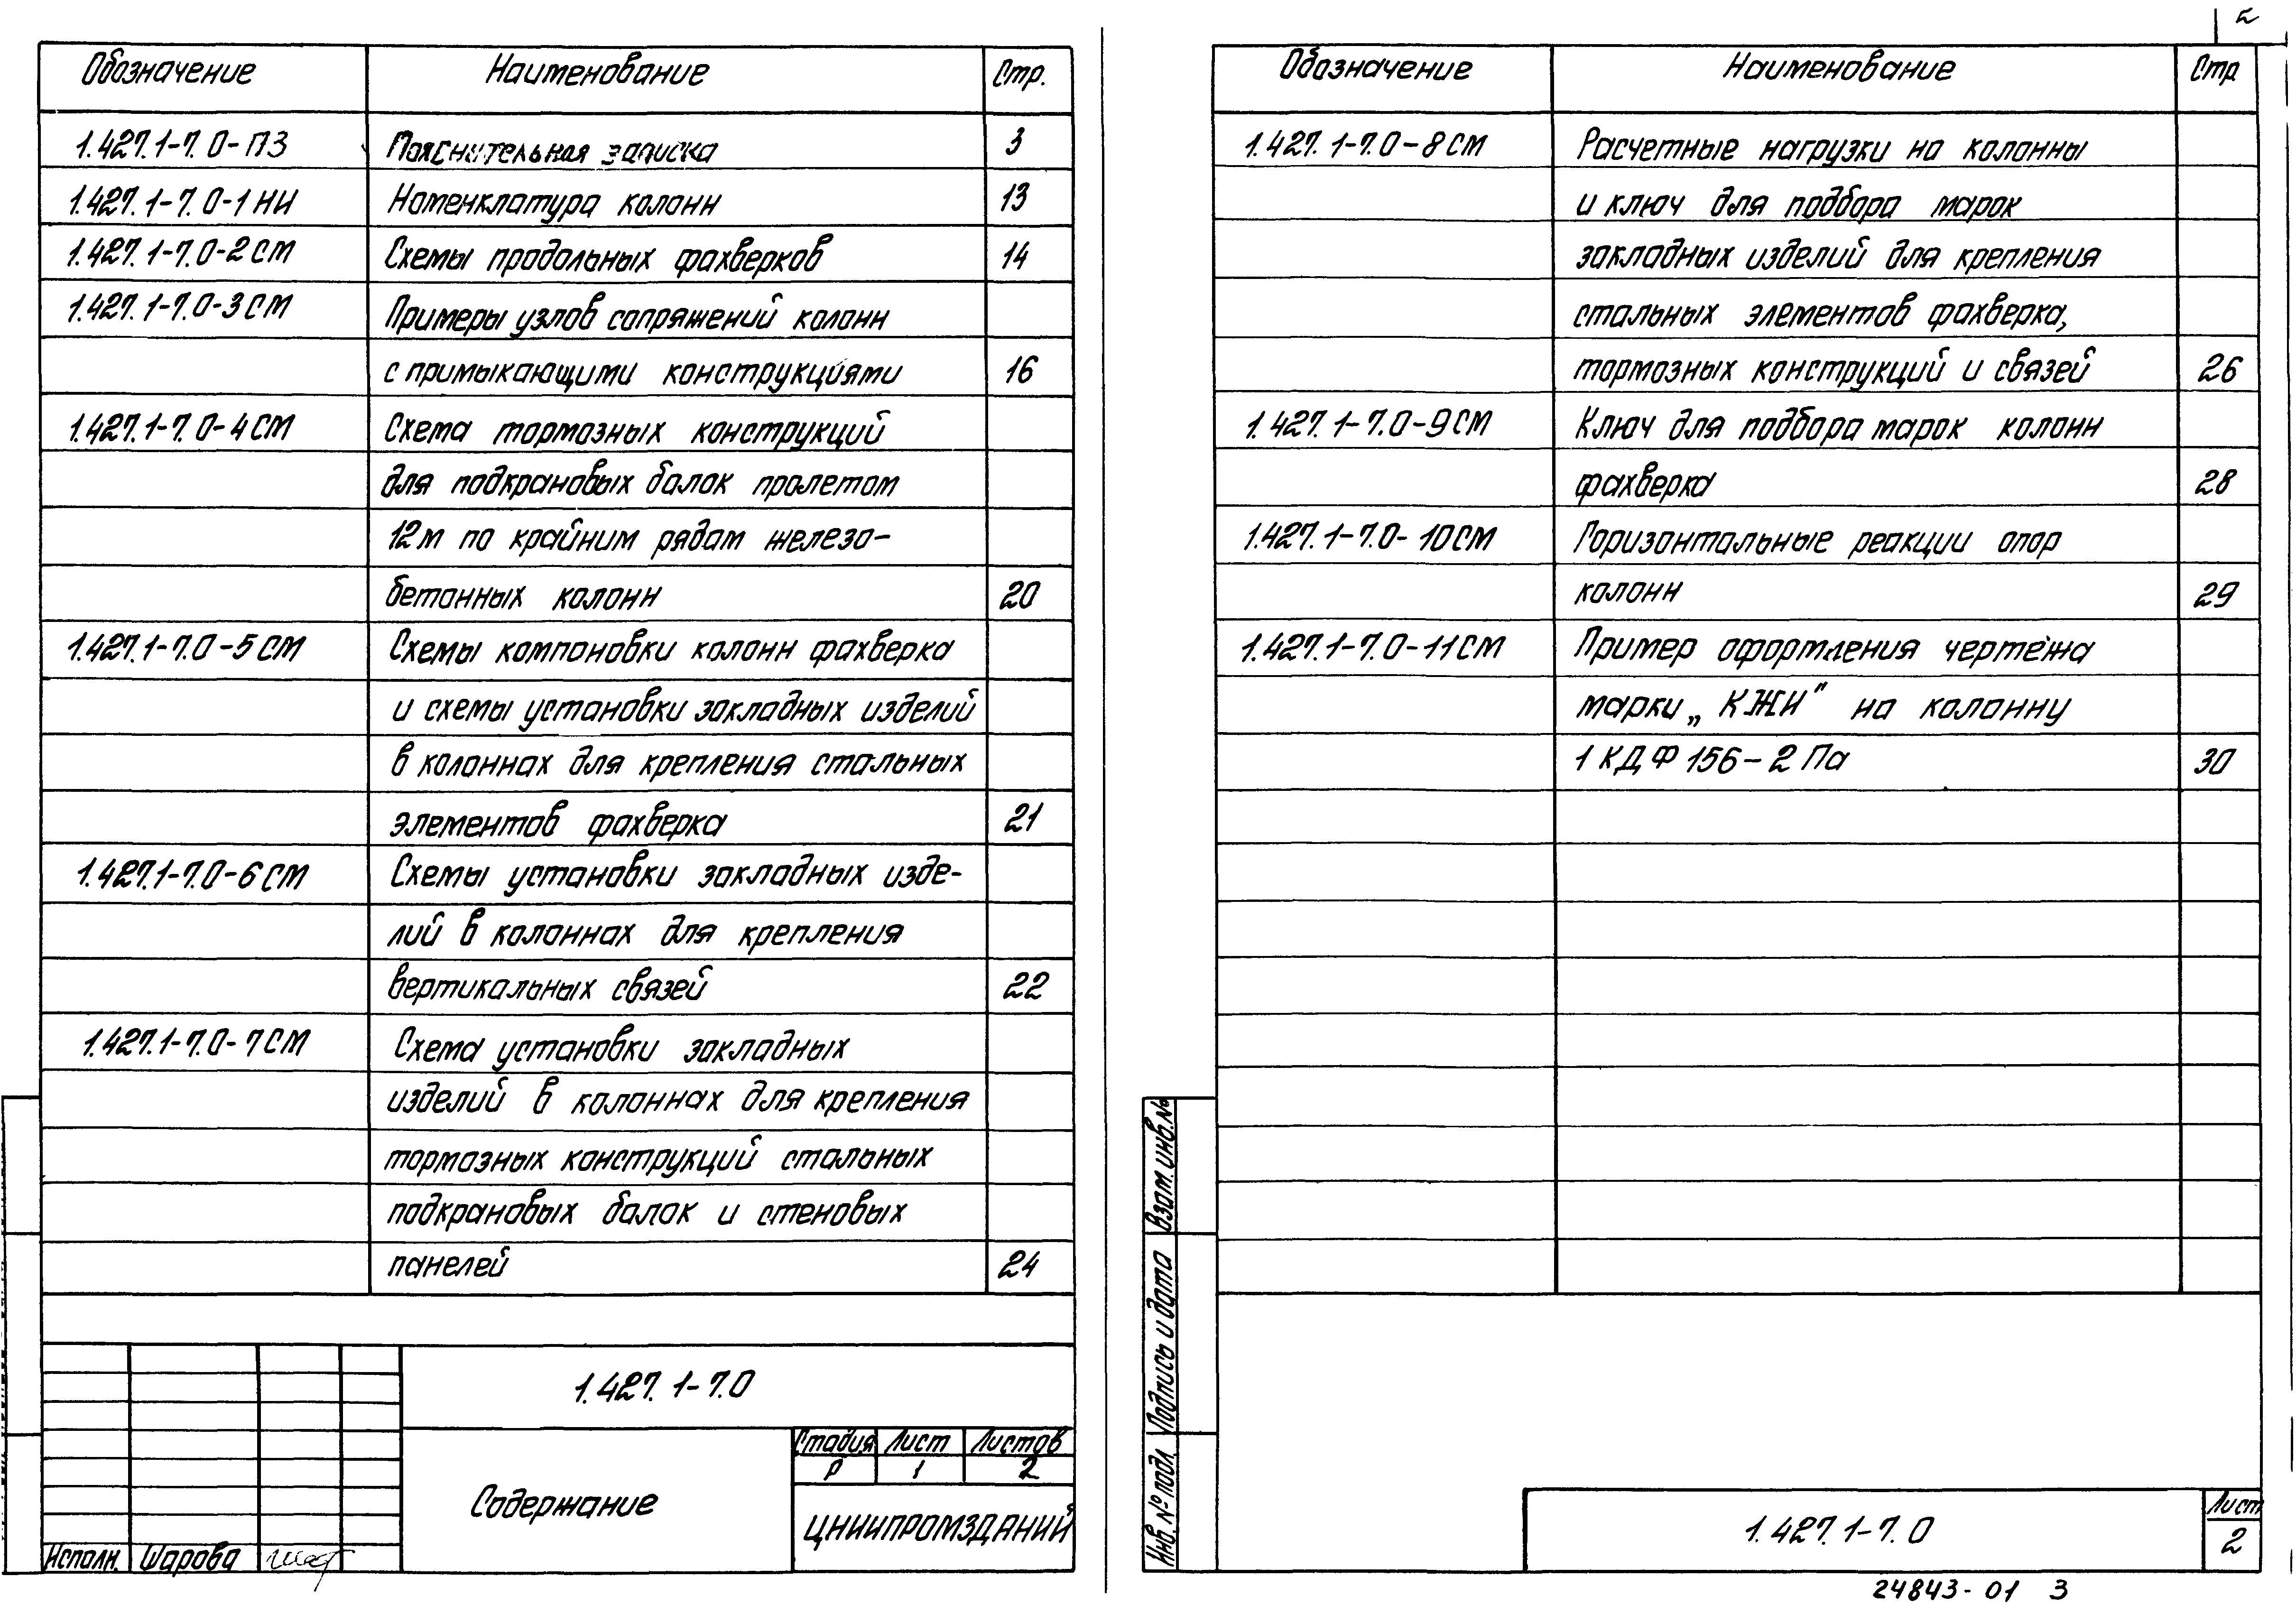 Обозначение Наименование Стр.
1.427.1-7.0-ПЗ Пояснительная записка 3
1.427.1-7.0-1НИ Номенклатура колонн 13
1.427.1-7.0-2СМ Схемы продольных фахверков 14
1.427.1-7.0-3СМ Примеры узлов сопряжений колонн
с примыкающими конструкциями 16
1.427.1-7.0-4СМ Схема тормозных конструкций
для подкрановых балок пролетом
12м по крайним рядам железо-
бетонных колонн 20
1.427.1-7.0-5СМ Схемы компоновки колонн фахверка
и схемы установки закладных изделий
в колоннах для крепления стальных
элементов фахверка 21
1.427.1-7.0-6СМ Схемы установки закладных изде-
лий в колоннах для крепления
вертикальных связей 22
1.427.1-7.0-7СМ Схема установки закладных
изделий в колоннах для крепления
тормозных конструкций стальных
подкрановых балок и стеновых
панелей 24
1.427.1-7.0
Содержание
Стадия Лист Листов
Р 1 2
ЦНИИПРОМЗДАНИЙ
Исполн. Шарова
2
Обозначение Наименование Стр
1.427.1-7.0-8СМ Расчетные нагрузки на колонны
и ключ для подбора марок
закладных изделий для крепления
стальных элементов фахверка,
тормозных конструкций и связей 26
1.427.1-7.0-9СМ Ключ для подбора марок колонн
фахверка 28
1.427.1-7.0-10СМ Горизонтальные реакции опор
колонн 29
1.427.1-7.0-11СМ Пример оформления чертежа
марки „КЖИ" на колонну
1КДФ156-2Па 30
Взам. инв.№
Подпись и дата
Инв.№ подл.
1.427.1-7.0
Лист
2
24843-01 3